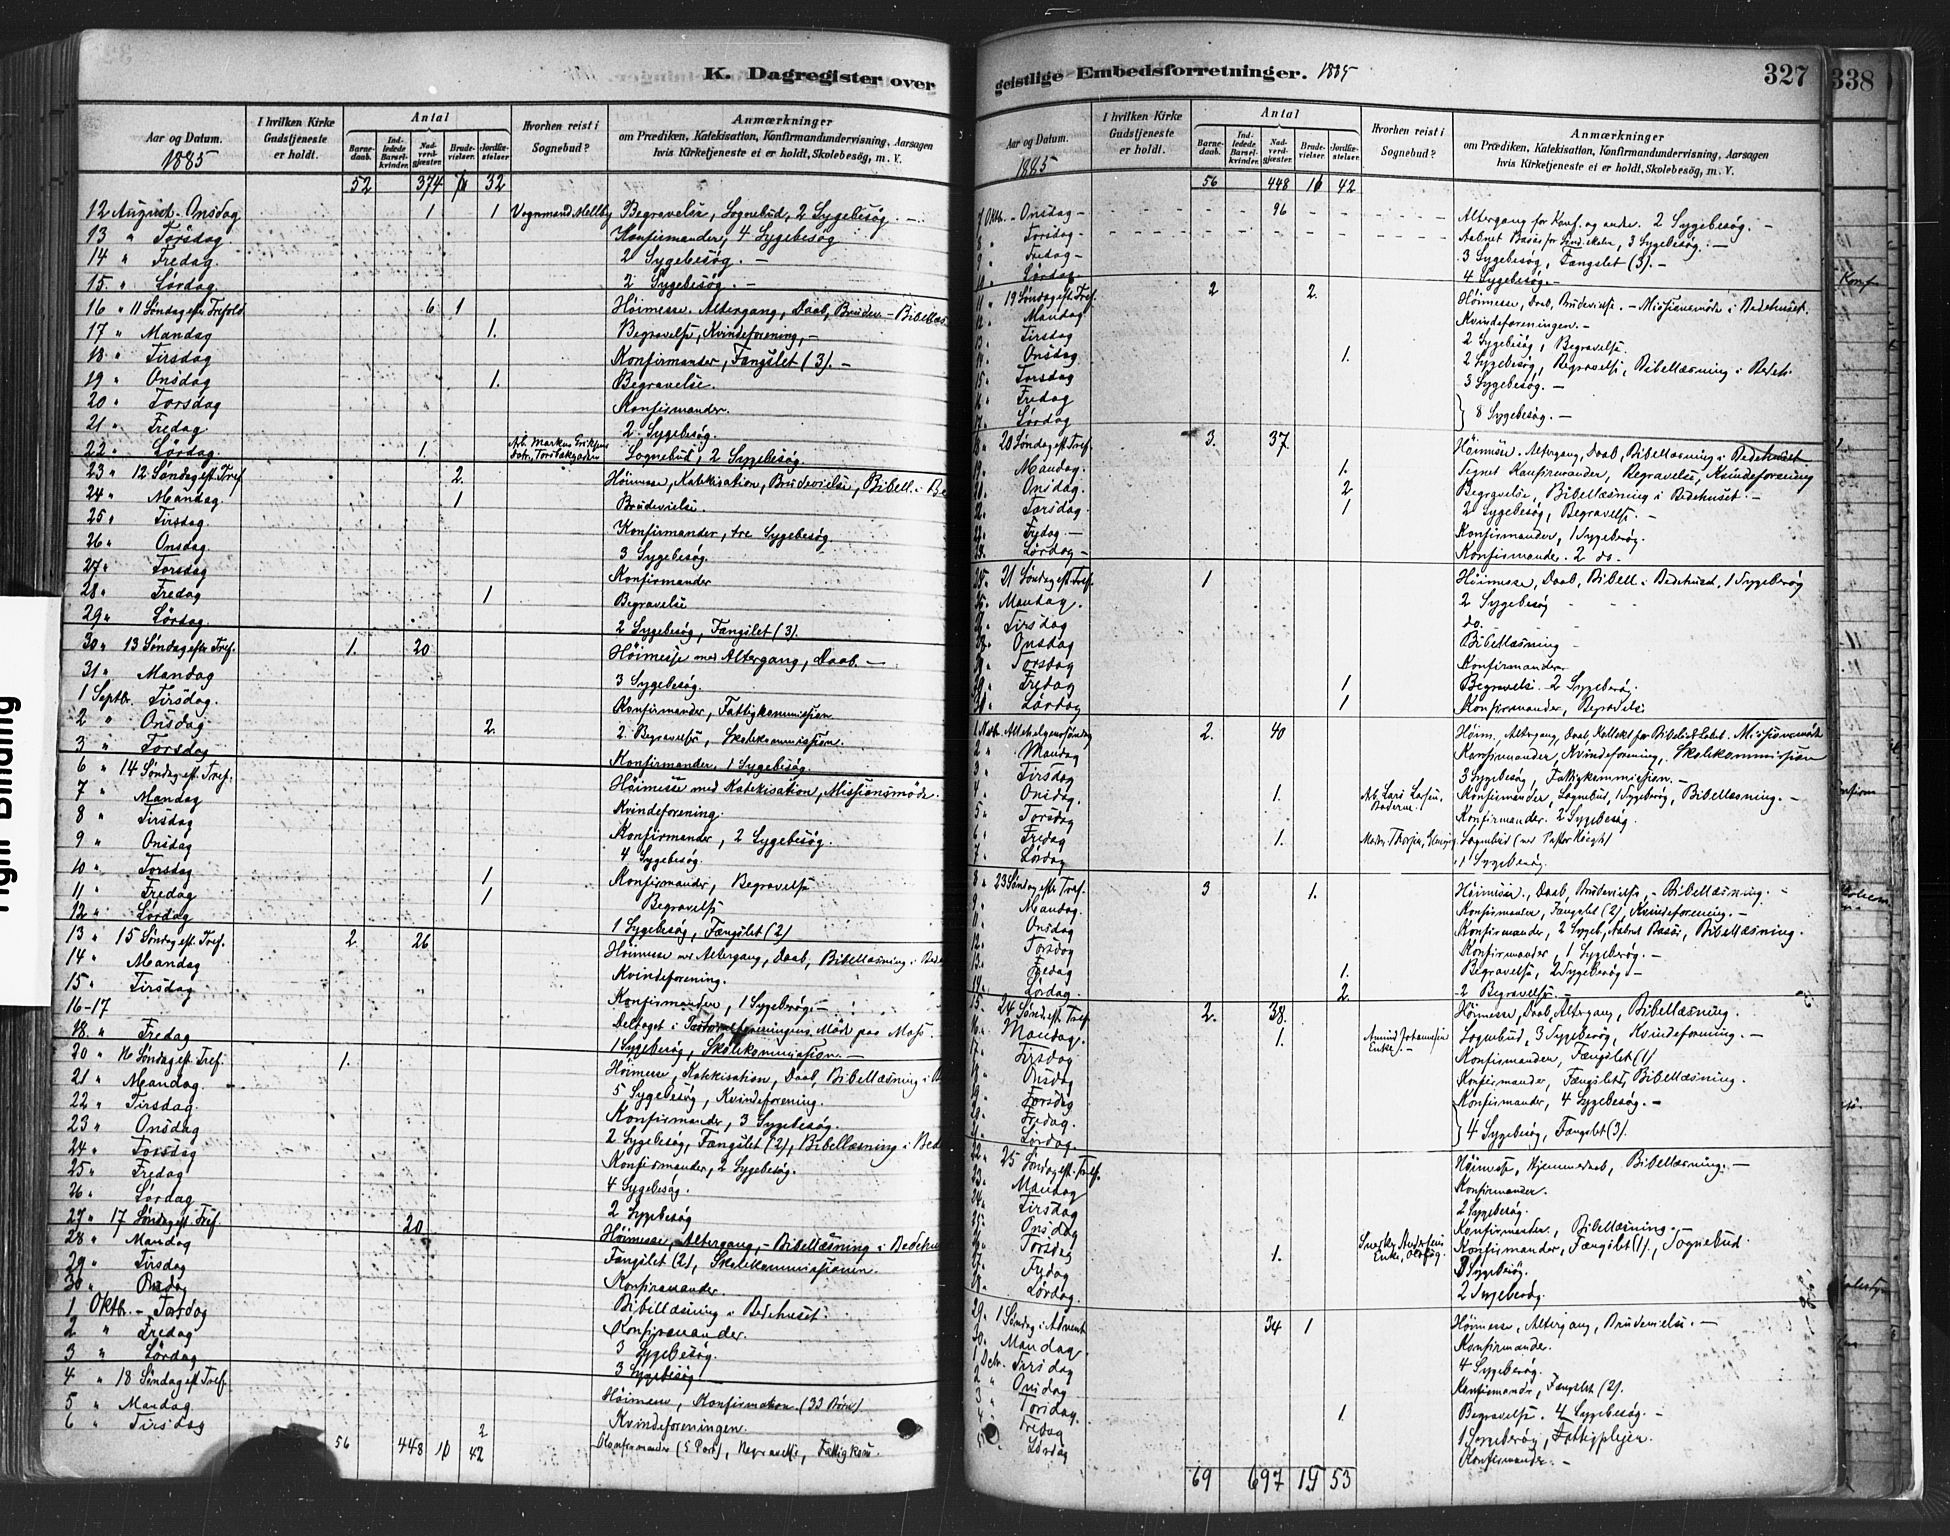 K. Dagregister over
Aar og Datum.
1885
I hvilken Kirke Gudstjeneste er holdt.
Antal
Barnedaab.
Indledede Barselkvinder.
Nadverdgjæster.
Brudevielser.
Jordfæstelser.
Hvorhen reist i Sognebud?
Anmærkninger
om Prædiken, Katekisation, Konfirmandundervisning, Aarsagen
hvis Kirketjeneste ei er holdt, Skolebesög, m. V.
52 374 32
12 August - Onsdag 1 1 Begravelse, Sognebud, 2 Sygebesøg. -
13 " Torsdag Konfirmander, 4 Sygebesøg
14 " Fredag 2 Sygebesøg. -
15 " Lørdag 2 Sygebesøg. -
16 " 11 Søndag efter Trefold. 6 1 Høimesse. Altergang, Daab, Brudev. - Bibellæs
17 " Mandag 1. Begravelse, Kvindeforening, -
18 " Tirsdag Konfirmander, Fængslet (3). -
19 " Onsdag 1. Begravelse.
20 " Torsdag Konfirmander.
21 " Fredag 2 Sygebesøg.
22 " Lørdag 1. Arb. Markus Eriksens Sognebud, 2 Sygebesøg.
23 " 12 Søndag eft Tref. 2. Høimesse, Katekisation, Brudevielse, Bibell. i Be
24 " Mandag 1 Brudevielse.
25 " Tirsdag Konfirmander, tre Sygebesøg
26 " Onsdag 3 Sygebesøg.
27 " Torsdag Konfirmander
28 " Fredag 1 Begravelse
29 " Lørdag 2 Sygebesøg, Fængslet (3).
30 " 13 Søndag efter Tref. 1. 20 Høimesse med Altergang, Daab. -
31 " Mandag 3 Sygebesøg.
1 Septbr. Tirsdag Konfirmander, Fattigkommission
2 " Onsdag 2. 2 Begravelse, Skolekommissionen.
3 " Torsdag Konfirmander, 1 Sygebesøg.
6 " 14 Søndag eft. Tref. Høimesse med Katekisation, Missionsmøde.
7 " Mandag Kvindeforening.
8 " Tirsdag Konfirmander, 2 Sygebesøg.
9 " Onsdag 4 Sygebesøg.
10 " Torsdag 1 Konfirmander, Begravelse
11 " Fredag 1 Begravelse
12 " Lørdag 1 Sygebesøg, Fængslet (2)
13 " 15 Søndag eft. Tref. 2. 26 Høimesse med Altergang, Daab, Bibellæsning i Bede
14 " Mandag Kvindeforening.
15 " Tirsdag Konfirmander, 1 Sygebesøg -
16-17 Deltaget i Pastoralforeningens Møde paa Moss.
18. " Fredag 1 Sygebesøg, Skolekommission. -
20 " 16 Søndag eft. Tref. 1. Høimesse, Katekisation, Daab, Bibellæsning i B
21 " Mandag 5 Sygebesøg, Kvindeforening.
22 " Tirsdag Konfirmander, 3 Sygebesøg.
23 " Onsdag 2 Sygebesøg, Fængslet (2), Bibellæsning i Bed
24 " Torsdag Konfirmander, 2 Sygebesøg.
25 " Fredag 4 Sygebesøg.
26 " Lørdag 2 Sygebesøg
27 " 17 Søndag eft. Tref. 20 Høimesse, Altergang, - Bibellæsning i Bedehu
28 " Mandag Fængslet (2), Skolekommissionen
29 " Tirsdag Konfirmander
30 " Onsdag Bibellæsning i Bedehuset.
1 Oktbr. - Torsdag Konfirmander.
2 " Fredag 3 Sygebesøg.
3 " Lørdag 3 Sygebesøg -
4 " 18 Søndag eft Tref. Høimesse, Konfirmation (33 Børn)
5 " Mandag Kvindeforeningen.
6 " Tirsdag 2 Konfirmander (5 Part), Begravelse, Fattigkom.
56 448 42
geistlige Embedsforretninger. 1885
327
338
Aar og Datum.
1885
I hvilken Kirke Gudstjeneste er holdt.
Antal
Barnedaab.
Indledede Barselkvinder.
Nadverdgjæster.
Brudevielser.
Jordfæstelser.
Hvorhen reist i Sognebud?
Anmærkninger
om Prædiken, Katekisation, Konfirmandundervisning, Aarsagen
hvis Kirketjeneste ei er holdt, Skolebesög, m. V.
56 448 42
7 Oktbr. - Onsdag - 96 Altergang for Konf. og andre. 2 Sygebesøg. -
8 " Torsdag - Aabnet Basar for , 3 Sygebesøg. -
9 " Fredag - 3 Sygebesøg, Fængslet (3). -
10 " Lørdag 4 Sygebesøg. -
11 " 19 Søndag eft. Tref. 2 2. Høimesse, Daab, Brudevielse. - Missionsmøde i Bedehuset.
12 " Mandag Kvindeforeningen. -
13 " Tirsdag 2 Sygebesøg, Begravelse.
14 " Onsdag 1. 2 Sygebesøg, Begravelse, Bibellæsning i Bedeh.
15 " Torsdag 3 Sygebesøg. -
16 " Fredag 8 Sygebesøg. -
17 " Lørdag
18 " 20 Søndag eft Tref. 3. 37 Høimesse. Altergang, Daab, Bibellæsning i Bedehuset
19. Mandag. 1. Tegnet Konfirmander, Begravelse, Kvindeforening
20. Onsdag. 2 Begravelse, Bibellæsning i Bedehuset. -
21. Torsdag. 1 2 Sygebesøg, Begravelse. -
22. Fredag - Konfirmander, 1 Sygebesøg.
23. Lørdag - Konfirmander. 2 do.
21 Søndag eft Tref. 1 Høimesse, Daab, Bibell. i Bedehuset, 1 Sygebesøg
Mandag. 2 Sygebesøg
Tirsdag do.
Onsdag Bibellæsning
Torsdag Konfirmander
Fredag 1 Begravelse. 2 Sygebesøg.
Lørdag 1 Konfirmander, Begravelse
1 Novb. Allehelgenssøndag 2. 40 Høim. Altergang, Daab, Kollekt for Bibelselskabet. Missionsmøde
2 " Mandag Konfirmander, Kvindeforening, Skolekommission
3 " Tirsdag 3 Sygebesøg, Fattigkommission. -
4 " Onsdag. 1. Arb. Lars Larsen, Konfirmander, Sognebud, 1 Sygebesøg, Bibellæsning. -
5 " Torsdag Konfirmander. 2 Sygebesøg.
6 " Fredag 1. Sognebud (ved Pastor Høegh)
7 " Lørdag 1 Sygebesøg.
8 " 23 Søndag efter Tref. 3 1. Høimesse, Daab, Brudevielse, - Bibellæsning. -
9 " Mandag. Konfirmander, Fængslet (2), Kvindeforening. -
11 " Onsdag Konfirmander, 2 Sygeb., Aabnet Basar, Bibellæsning.
12. Torsdag Konfirmander, 1 Sygebesøg. -
13. Fredag 1. Begravelse, 2 Sygebesøg -
14. Lørdag. 2. 2 Begravelse. -
15 " 24 Søndag eft. Tref. 2. 38. Høimesse, Daab, Altergang, Bibellæsning.
16. Mandag. 1. Johannesen Enke. - Sognebud, 3 Sygebesøg, Kvindeforening. -
17. Tirsdag Konfirmander, Fængslet (1)
Onsdag Konfirmander, Fængslet, Bibellæsning.
Torsdag Konfirmander, 4 Sygebesøg. -
Fredag. 4 Sygebesøg, Fængslet (3).
Lørdag.
22 " 25 Søndag eft. Tref. Høimesse, Hjemmedaab, Bibellæsning. -
23. Mandag Konfirmander.
24. Tirsdag 2 Sygebesøg.
25. Onsdag Konfirmander, Bibellæsning. -
26. Torsdag 1. Andersens Enke, Konfirmander, Fængslet (1), Sognebud
27. Fredag Sygebesøg.
28. Lørdag. 2 Sygebesøg.
29. 1 Søndag i Advent 34 1 Høimesse, Altergang, Brudevielse. -
30. Mandag Konfirmander.
1 Decbr. Tirsdag 4 Sygebesøg.
2 " Onsdag Konfirmander, Fængslet (2).
3 " Torsdag. 1. Begravelse. 4 Sygebesøg. -
4 " Fredag 1 Sygebesøg, Fattigplejen.
5 " Lørdag Konfirmander. -
69 697 53